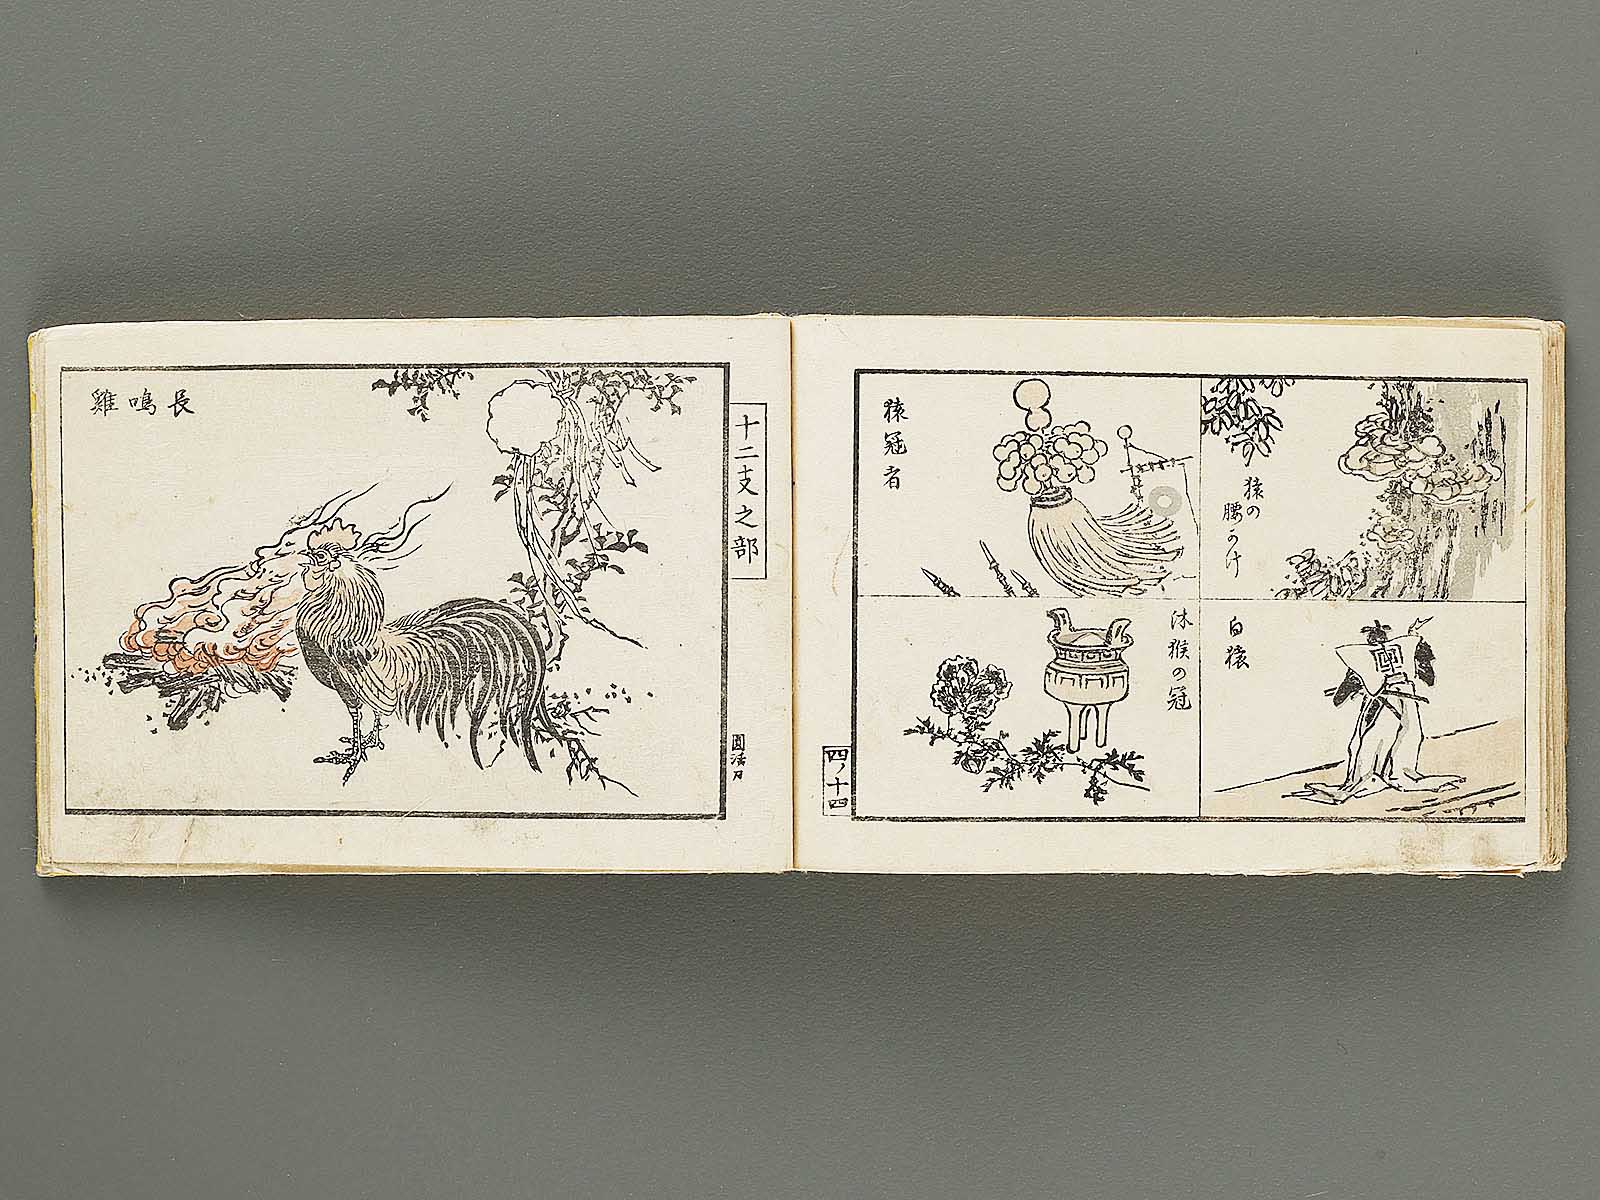 猿の
腰かけ
白猿
猿冠者
沐猴の冠
四ノ十四
十二支之部
圓活刀
長鳴雞